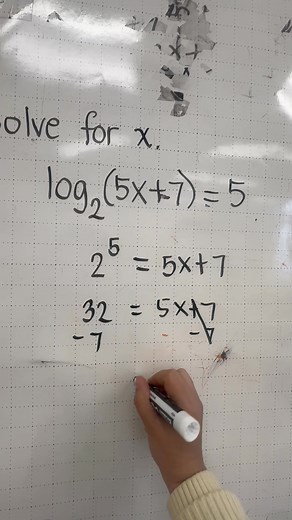 olve for x.
log₂(5x+7) = 5
2⁵ = 5x+7
32 = 5x+7
-7 -7